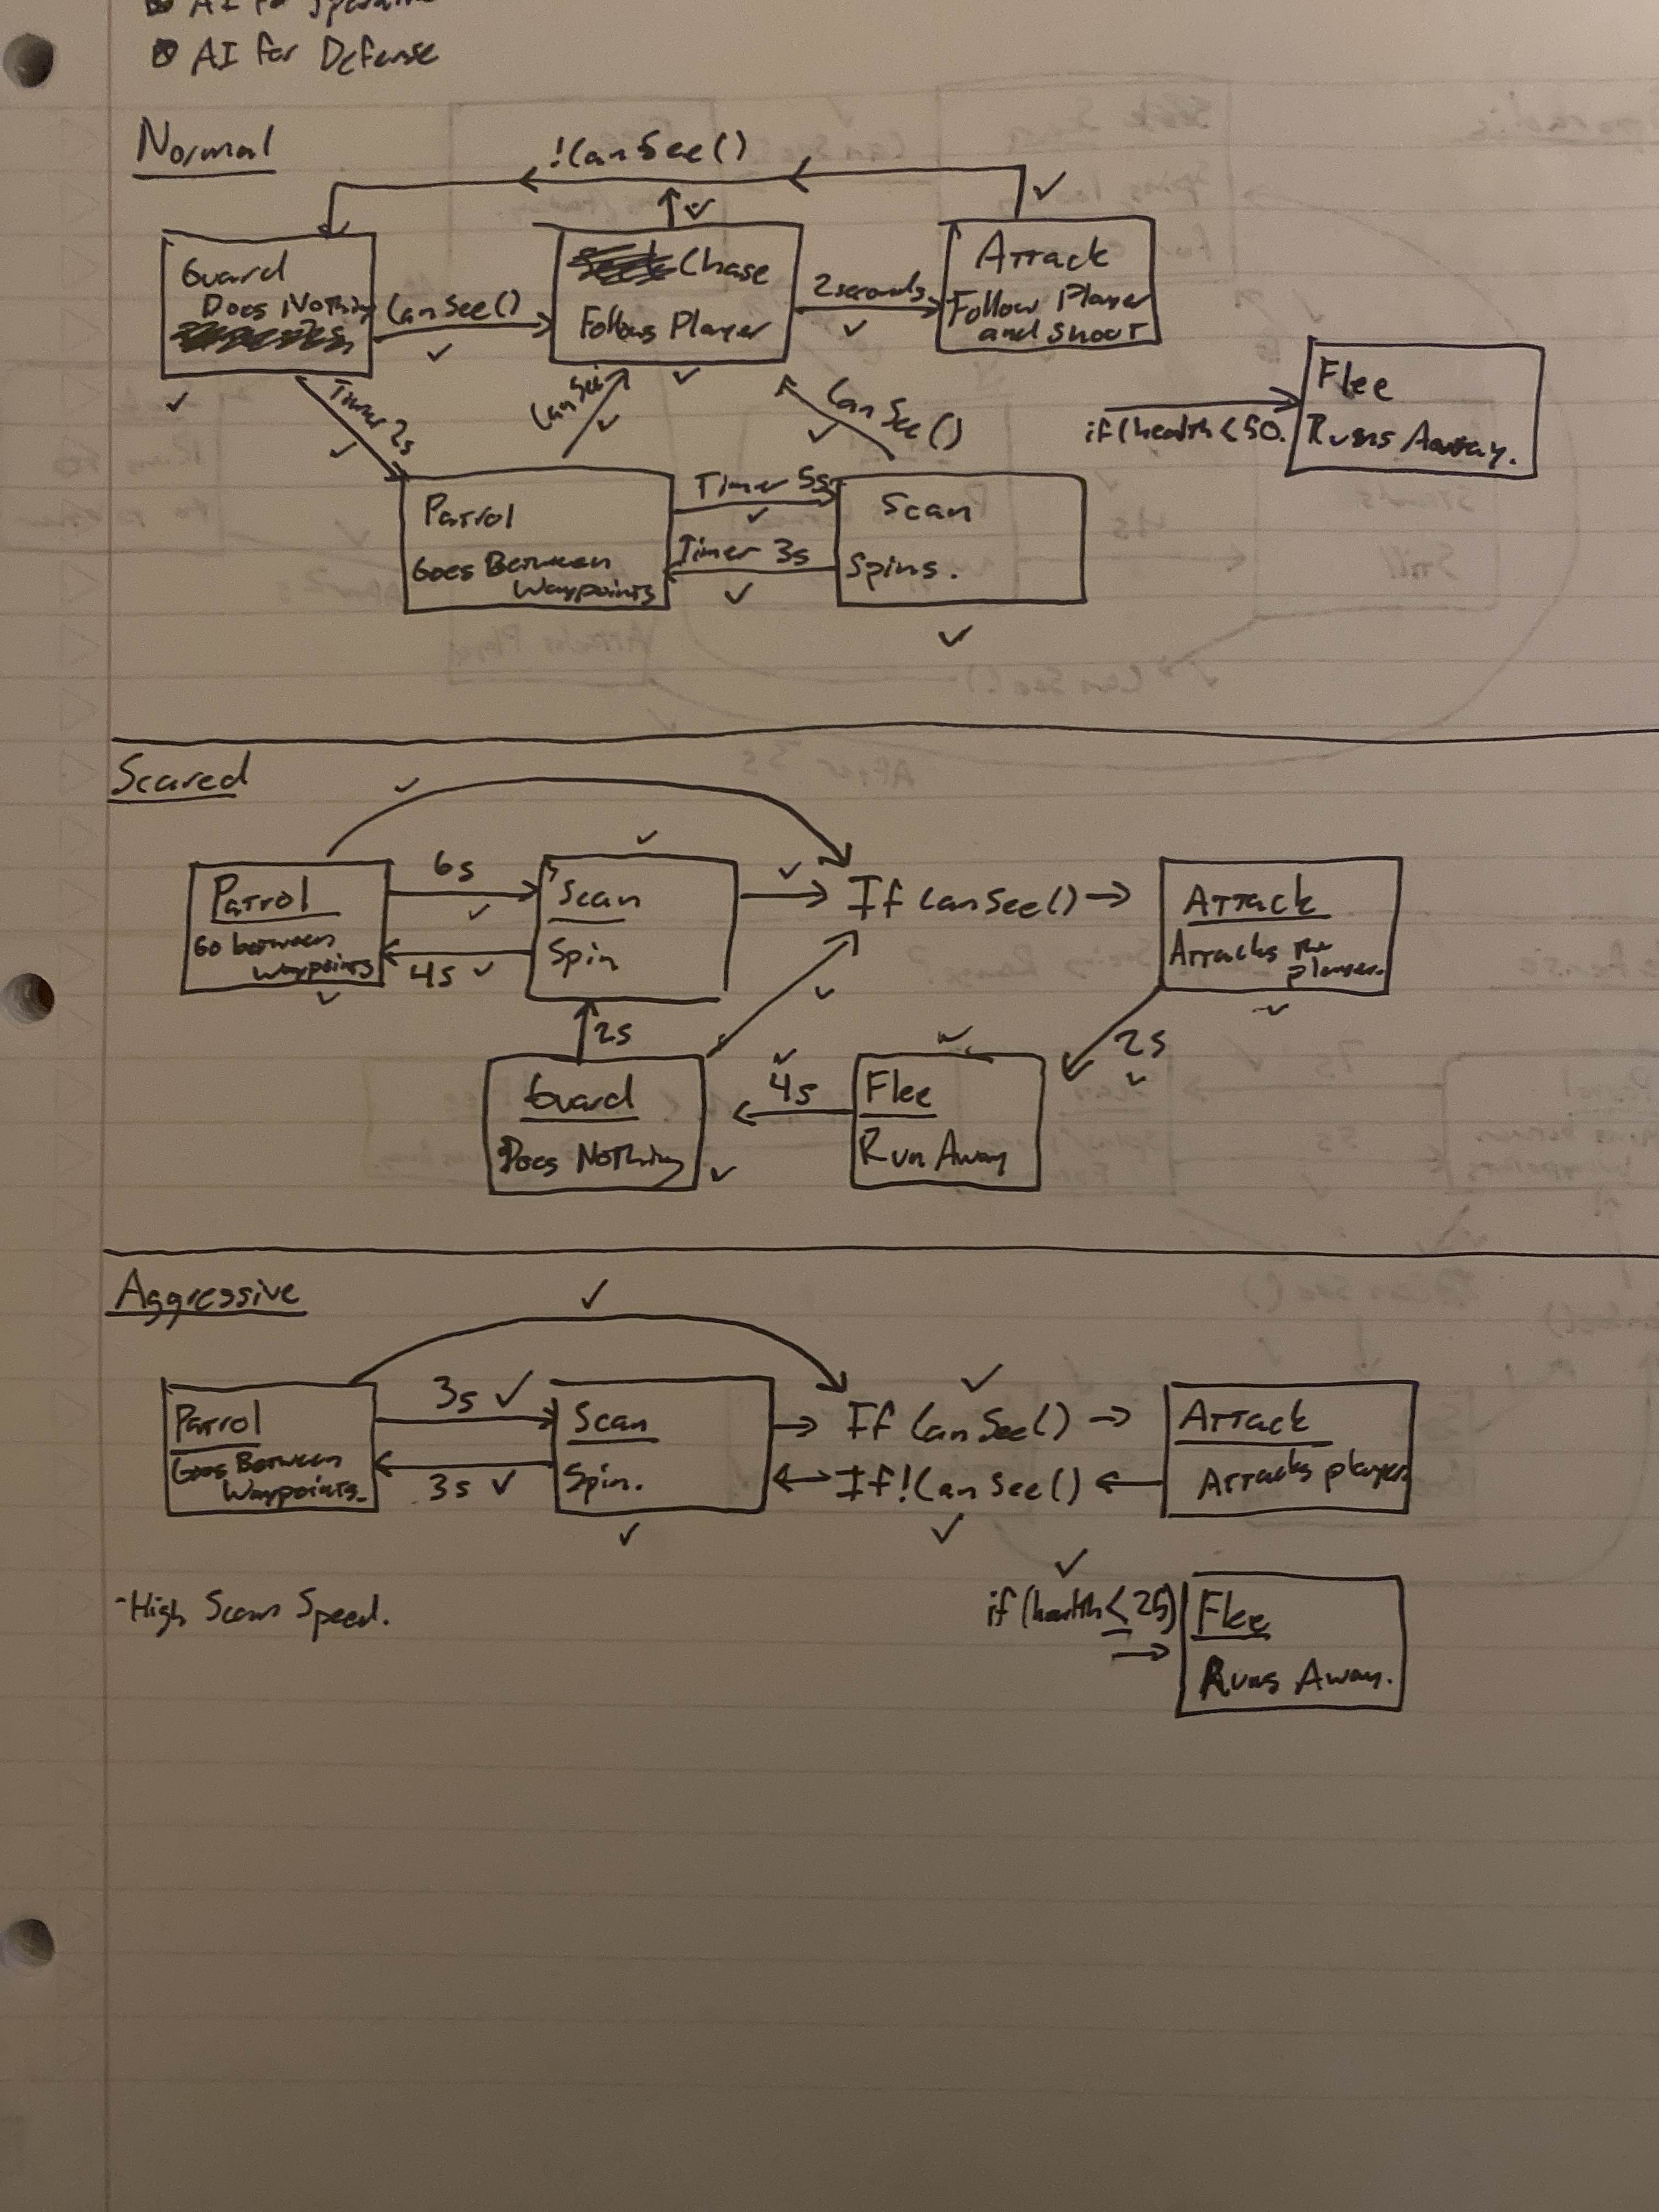 AI for
AI for Defense
Normal
!CanSee()
Guard
Does Nothing
CanSee()
Chase
Follows Player
2 seconds
Attack
Follow Player
and shoot
Timer 2s
CanSee
CanSee()
if(health < 50.
Flee
Runs Away.
Patrol
Goes Between
Waypoints
Timer 5s
Timer 3s
Scan
Spins.
Scared
Patrol
Go between
Waypoints
6s
4s
Scan
Spin
If CanSee()
Attack
Attacks the
player.
2s
2s
Guard
Does Nothing
4s
Flee
Run Away
Aggressive
Patrol
Goes Between
Waypoints.
3s
3s
Scan
Spin.
If CanSee()
If !CanSee()
Attack
Attacks player
-High Scan Speed.
if(health ≤ 25)
Flee
Runs Away.